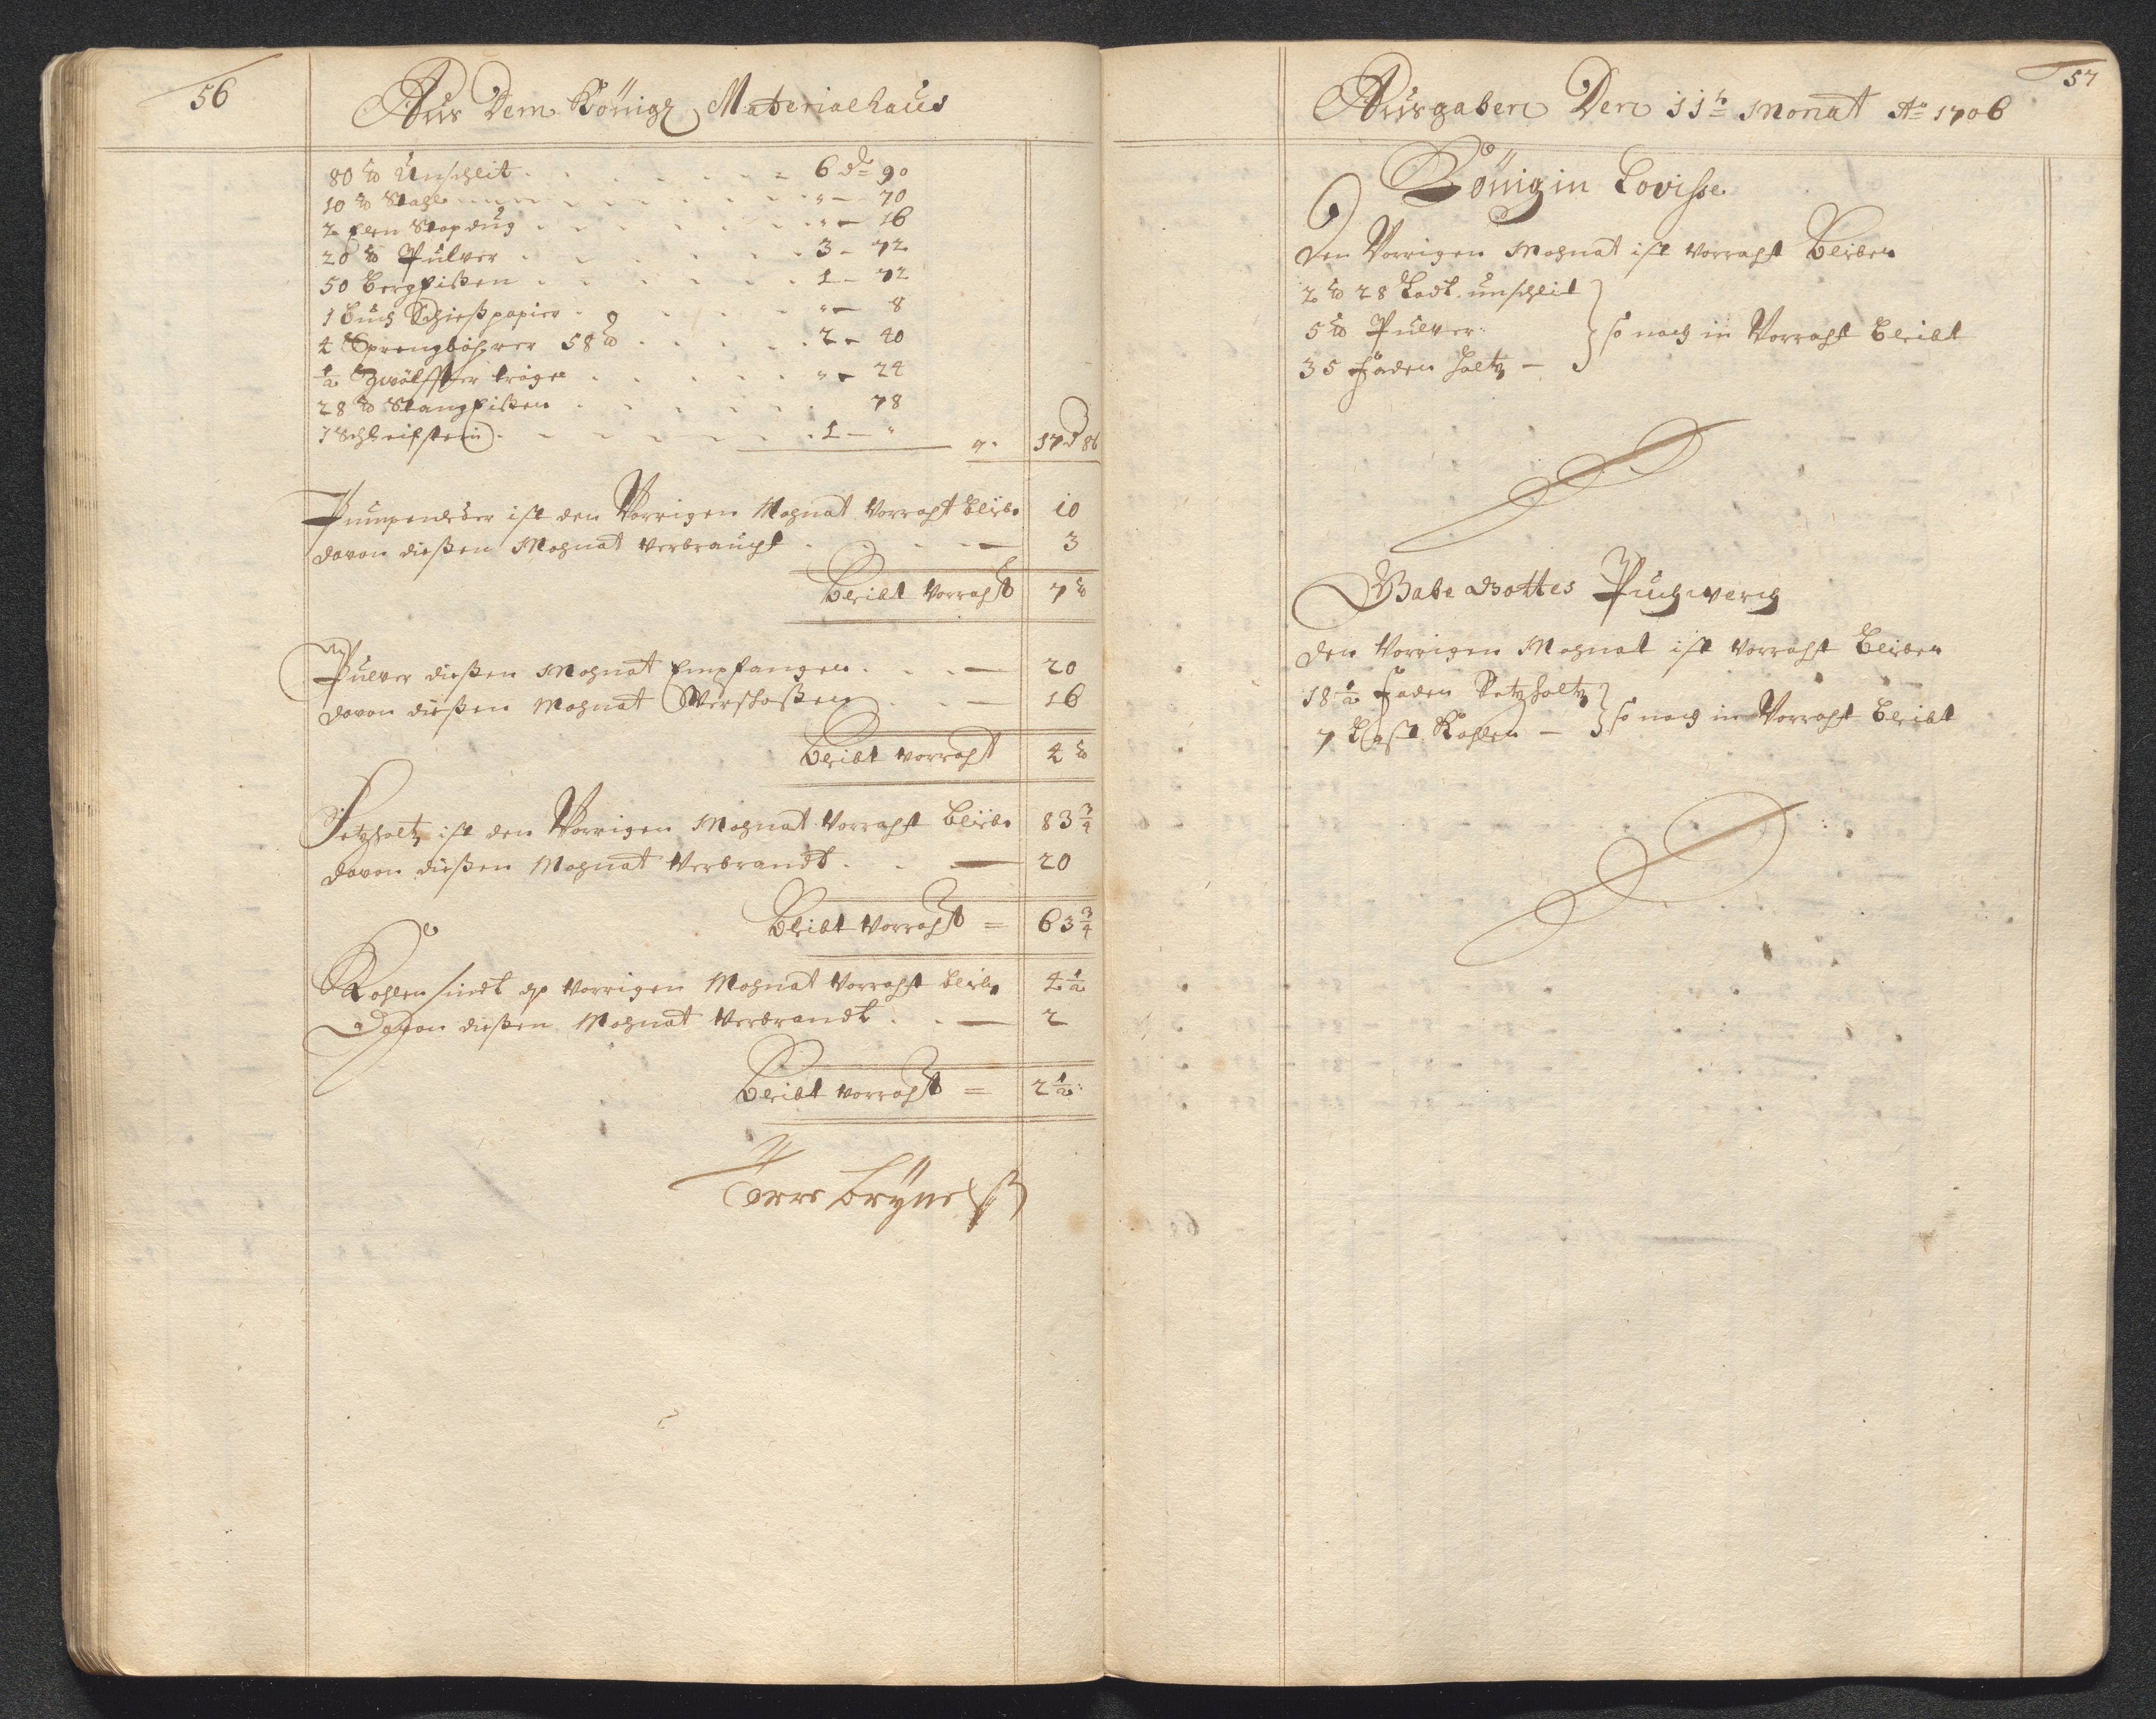 56
Aus Dem Königl Materialhaus
80 ℔ Unschleit . . . . . . 6 d= 90
10 ℔ Stahl . . . . . . „ — 70
2 Elen Stopdug . . . . . . „ — 16
20 ℔ Pulver . . . . . . 3 — 72
50 Bergeißen . . . . . . 1 — 72
1 Buch Schießpapier . . . . . „ — 8
4 Sprengbohrer 58 ℔ . . . . . 2 — 40
½ Zwölffter tröge . . . . . „ — 24
28 ℔ Stangeißen . . . . . 78
1 Schleifstein . . . . . . 1 — „
17 d 86
Pumpenleder ist den Vorrigen Mohnat Vorraht bleibe 10
davon dießen Mohnat Verbraucht . . . — 3
bleibt Vorraht 7 ℔
Pulver dießen Mohnat Empfangen . . . — 20
davon dießen Mohnat Verschoßen . . — 16
bleibt vorraht 4 ℔
Setzholtz ist den Vorrigen Mohnat Vorraht bleibe 83 ¾
davon dießen Mohnat Verbrandt . . — 20
bleibt Vorraht = 63 ¾
Kohlen sindt Vorrigen Mohnat Vorraht bleibe 4 ½
Davon dießen Mohnat Verbrandt . . — 2
bleibt vorraht = 2 ½
Torre Brÿnelß
57
Ausgaben Den 11t Monat Ao 1706
Königin Lovisse
Den Vorrigen Mohnat ist Vorraht bleiben
2 ℔ 28 Lodt unschleit
5 ℔ Pulver
35 Faden holtz —
so noch in Vorraht bleibt
Gabe Gottes Puchwerch
Den Vorrigen Mohnat ist Vorraht bleiben
18 ½ Faden Setzholtz
7 Last Kohlen —
so noch in Vorraht bleibt